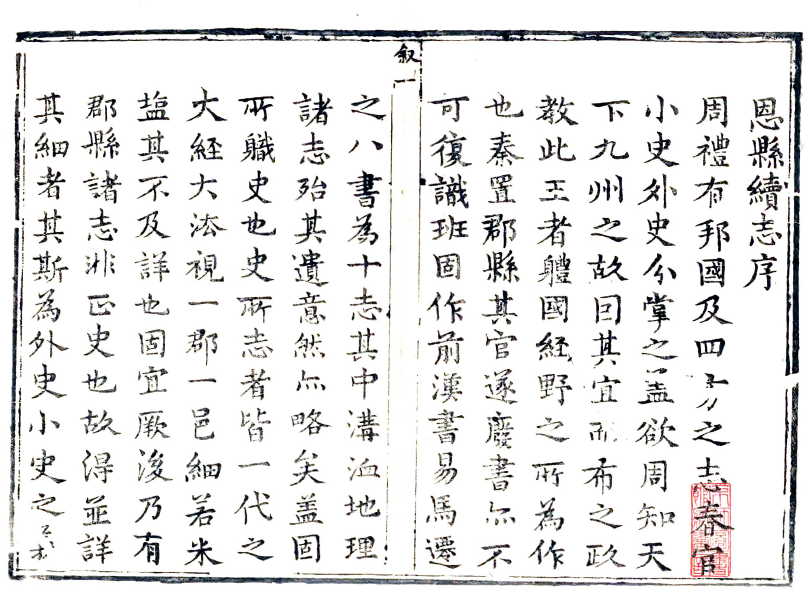 恩縣續志序
周禮有邦國及四方之志春官
小史外史分掌之盖欲周知天
下九州之故因其宜而布之政
教此王者軆國經野之所為作
也秦置郡縣其官遂廢書亦不
可復識班固作前漢書易馬遷
叙一
之八書為十志其中溝洫地理
諸志殆其遺意然亦略矣盖固
所職史也史所志者皆一代之
大經大法視一郡一邑細若米
塩其不及詳也固宜厥後乃有
郡縣諸志非正史也故得並詳
其細者其斯為外史小史之